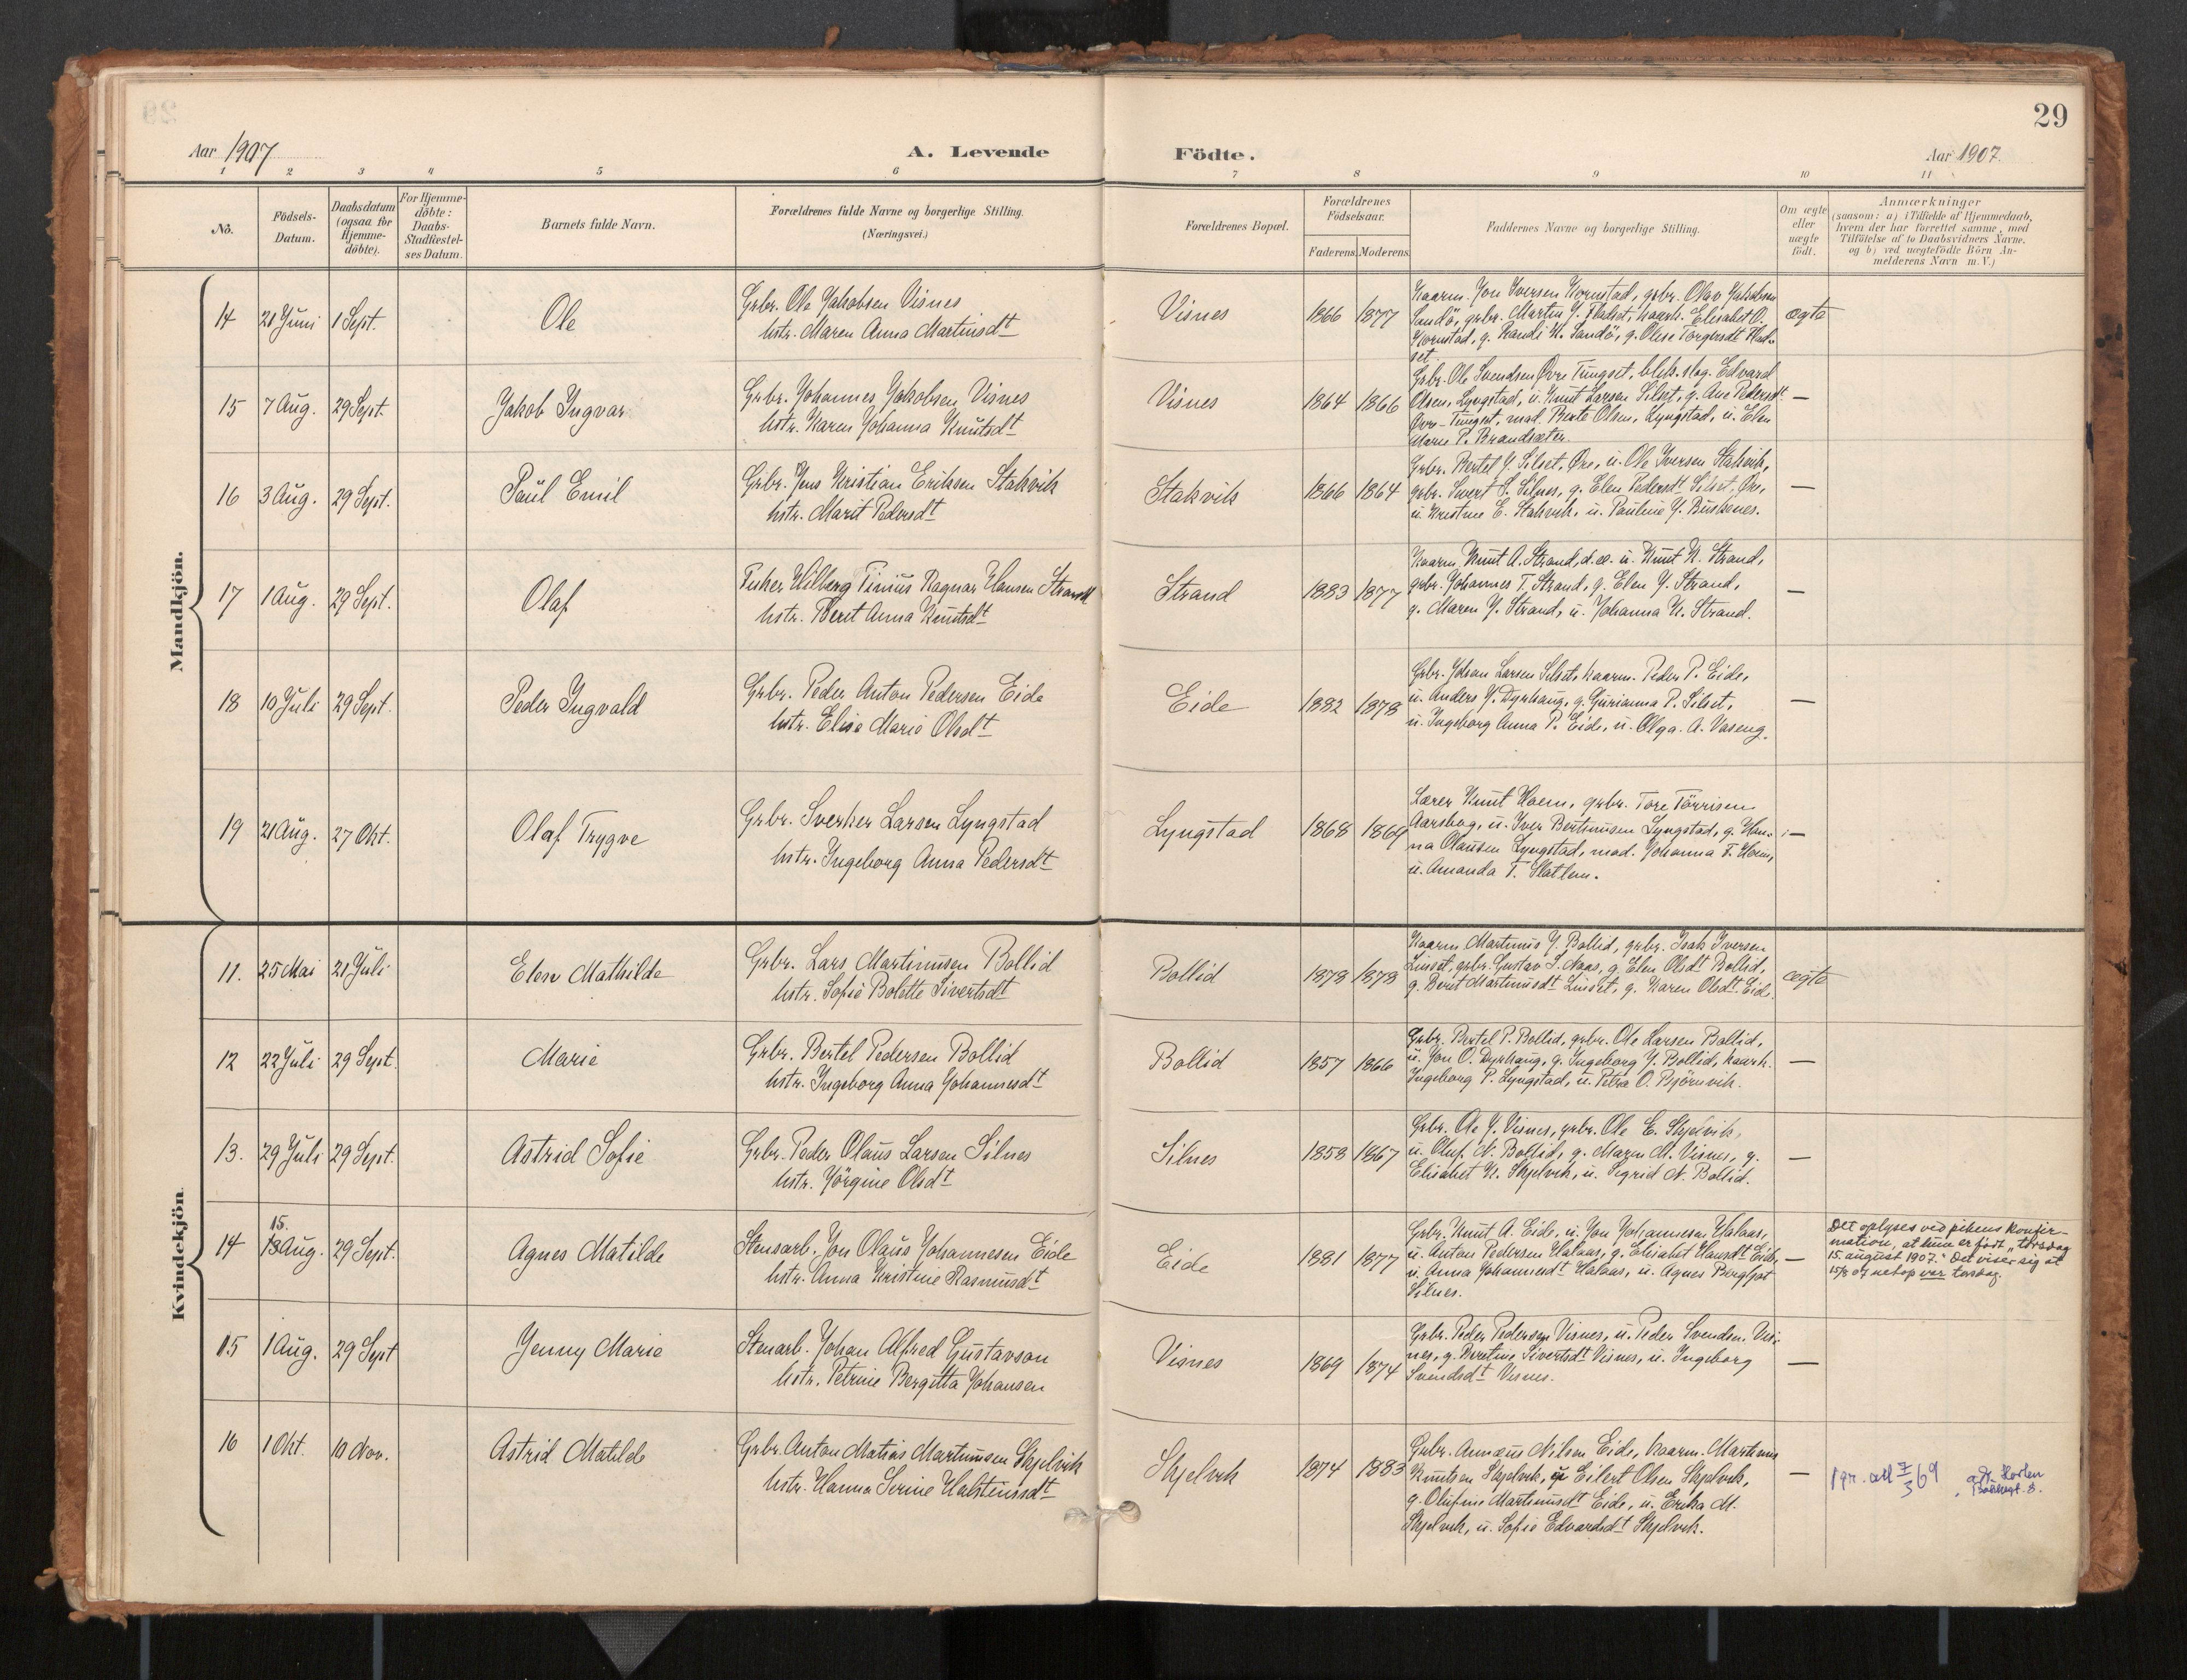 29
Aar 1907
A. Levende
Födte.
Aar 1907.
1 2 3 4 5 6 7 8 9 10 11
No.
Födsels-
Datum.
Daabsdatum
(ogsaa for
Hjemme-
döbte).
For Hjemme-
döbte:
Daabs-
Stadfæstel-
ses Datum.
Barnets fulde Navn.
Forældrenes fulde Navne og borgerlige Stilling.
(Næringsvei.)
Forældrenes Bopæl.
Forældrenes
Födselsaar.
Faderens. Moderens.
Faddernes Navne og borgerlige Stilling.
Om ægte
eller
uægte
födt.
Anmærkninger
(saasom: a) i Tilfælde af Hjemmedaab,
hvem der har forrettet samme, med
Tilföielse af to Daabsvidners Navne.
og b) ved uægtefödte Börn An-
melderens Navn m. V.)
Mandkjön.
14 21 Juni 1 Sept. Ole
Grbr. Ole Jakobsen Visnes
hstr. Maren Anna Martinsdt
Visnes 1866 1877
Kaarm. Jon Iversen Kornstad, grbr. Olav Jakobsen
Sandö, grbr. Martin J. Fladset, kaark. Elisabet O.
Kornstad, g. Randi K. Sandö, g. Oline Torgersdt Flad-
set.
ægte
15 7 Aug. 29 Sept. Jakob Ingvar
Grbr. Johannes Jakobsen Visnes
hstr. Karen Johanna Knutsdt
Visnes 1864 1866
Grbr. Ole Svendsen Øvre Tungset, blik.slag. Edvard
Olsen, Lyngstad, u. Knut Larsen Silset, g. Ane Pedersdt
Øvre-Tungset, mad. Berte Olsen, Lyngstad, u. Elen
Marie P. Brandsæter.
—
16 3 Aug. 29 Sept. Paul Emil
Grbr. Jens Kristian Eriksen Stakvik
hstr. Marit Pedersdt
Stakvik 1866 1864
Grbr. Bertel J. Silset, Øre, u. Ole Iversen Stakvik,
grbr. Sivert S. Silnes, g. Elen Pedersdt Silset, Øre,
u. Kristine E. Stakvik, u. Pauline J. Buskenes.
—
17 1 Aug. 29 Sept. Olaf
Fisker Hilberg Tinius Ragnar Hansen Strand
hstr. Berit Anna Knutsdt
Strand 1883 1877
Kaarm. Knut A. Strand, d.æ. u. Knut K. Strand,
grbr. Johannes T. Strand, g. Elen J. Strand,
g. Maren J. Strand, u. Johanna K. Strand.
—
18 10 Juli 29 Sept. Peder Ingvald
Grbr. Peder Anton Pedersen Eide
hstr. Elise Marie Olsdt
Eide 1882 1878
Grbr. Johan Larsen Silset, kaarm. Peder P. Eide,
u. Anders J. Dyrhaug, g. Gurianna P. Silset,
u. Ingeborg Anna P. Eide, u. Olga A. Vaseng.
—
19 21 Aug. 27 Okt. Olaf Trygve
Grbr. Sverker Larsen Lyngstad
hstr. Ingeborg Anna Pedersdt
Lyngstad 1868 1869
Lærer Knut Hoem, grbr. Tore Törrisen
Aarsbog, u. Iver Bertinusen Lyngstad, g. Han-
na Olausen Lyngstad, mad. Johanna F. Hoem,
u. Amanda T. Slatlem.
—
Kvindekjön.
11. 25 Mai 21 Juli Elen Mathilde
Grbr. Lars Martinusen Bollid
hstr. Sofie Bolette Sivertsdt
Bollid 1878 1878
Kaarm. Martinus J. Bollid, grbr. Isak Iversen
Linset, grbr. Gustav S. Naas, g. Elen Olsdt Bollid,
g. Berit Martinusdt Linset, g. Karen Olsdt Eide.
ægte
12 22 Juli 29 Sept. Marie
Grbr. Bertel Pedersen Bollid
hstr. Ingeborg Anna Johannesdt
Bollid 1857 1866
Grbr. Bertel P. Bollid, grbr. Ole Larsen Bollid,
u. Jon O. Dyrhaug, g. Ingeborg J. Bollid, kaark.
Ingeborg P. Lyngstad, u. Petra O. Björnvik.
—
13. 29 Juli 29 Sept. Astrid Sofie
Grbr. Peder Olaus Larsen Silnes
hstr. Jörgine Olsdt
Silnes 1858 1867
Grbr. Ole J. Visnes, grbr. Ole E. Skjelvik,
u. Oluf N. Bollid, g. Maren M. Visnes, g.
Elisabet K. Skjelvik, u. Sigrid N. Bollid.
—
15.
14 13 Aug. 29 Sept. Agnes Matilde
Stensarb. Jon Olaus Johannesen Eide
hstr. Anna Kristine Rasmusdt
Eide 1881 1877
Grbr. Knut A. Eide, u. Jon Johannesen Halaas,
u. Anton Pedersen Halaas, g. Elisabet Hansdt Eide,
u. Anna Johannesdt Halaas, u. Agnes Bergljot
Silnes.
—
Det oplyses ved pikens konfir-
mation, at hun er født "torsdag
15. august 1907." Det viser sig at
15/8 07 netop var torsdag.
15 1 Aug. 29 Sept Jenny Marie
Stenarb. Johan Alfred Gustavson
hstr. Petrine Bergitta Johansen
Visnes 1869 1874
Grbr. Peder Pedersen Visnes, u. Peder Svendsen Vis-
nes, g. Beretine Sivertsdt Visnes, u. Ingeborg
Svendsdt Visnes.
—
16 1 Okt. 10 Nov. Astrid Matilde
Grbr. Anton Matias Martinusen Skjelvik
hstr. Hanna Serine Halstensdt
Skjelvik 1874 1883
Grbr. Annæus Nilsen Eide, kaarm. Martinus
Knutsen Skjelvik, u. Eilert Olsen Skjelvik,
g. Olufine Martinusdt Eide, u. Erika M.
Skjelvik, u. Sofie Edvardsdt Skjelvik.
—
1 gr. att 7/3 69